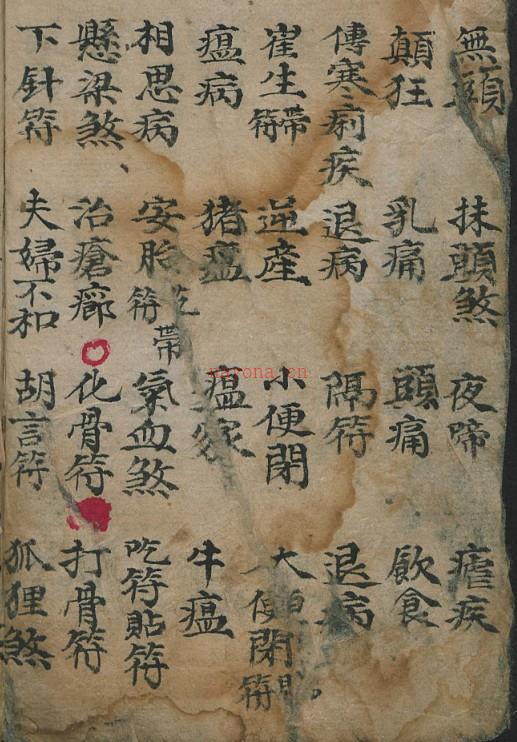 無頭 抹頭煞 夜啼 瘧疾
顛狂 乳痛 頭痛 飲食
傳寒痢疾 退病 隔符 退病
崔生符帶 逆產 小便閉 大便閉符
瘟病 猪瘟 瘟 牛瘟
相思病 安胎符 帶 氣血煞 吃符貼符
懸梁煞 治瘡癤 化骨符 打骨符
下針符 夫婦不和 胡言符 狐狸煞
narona.cn